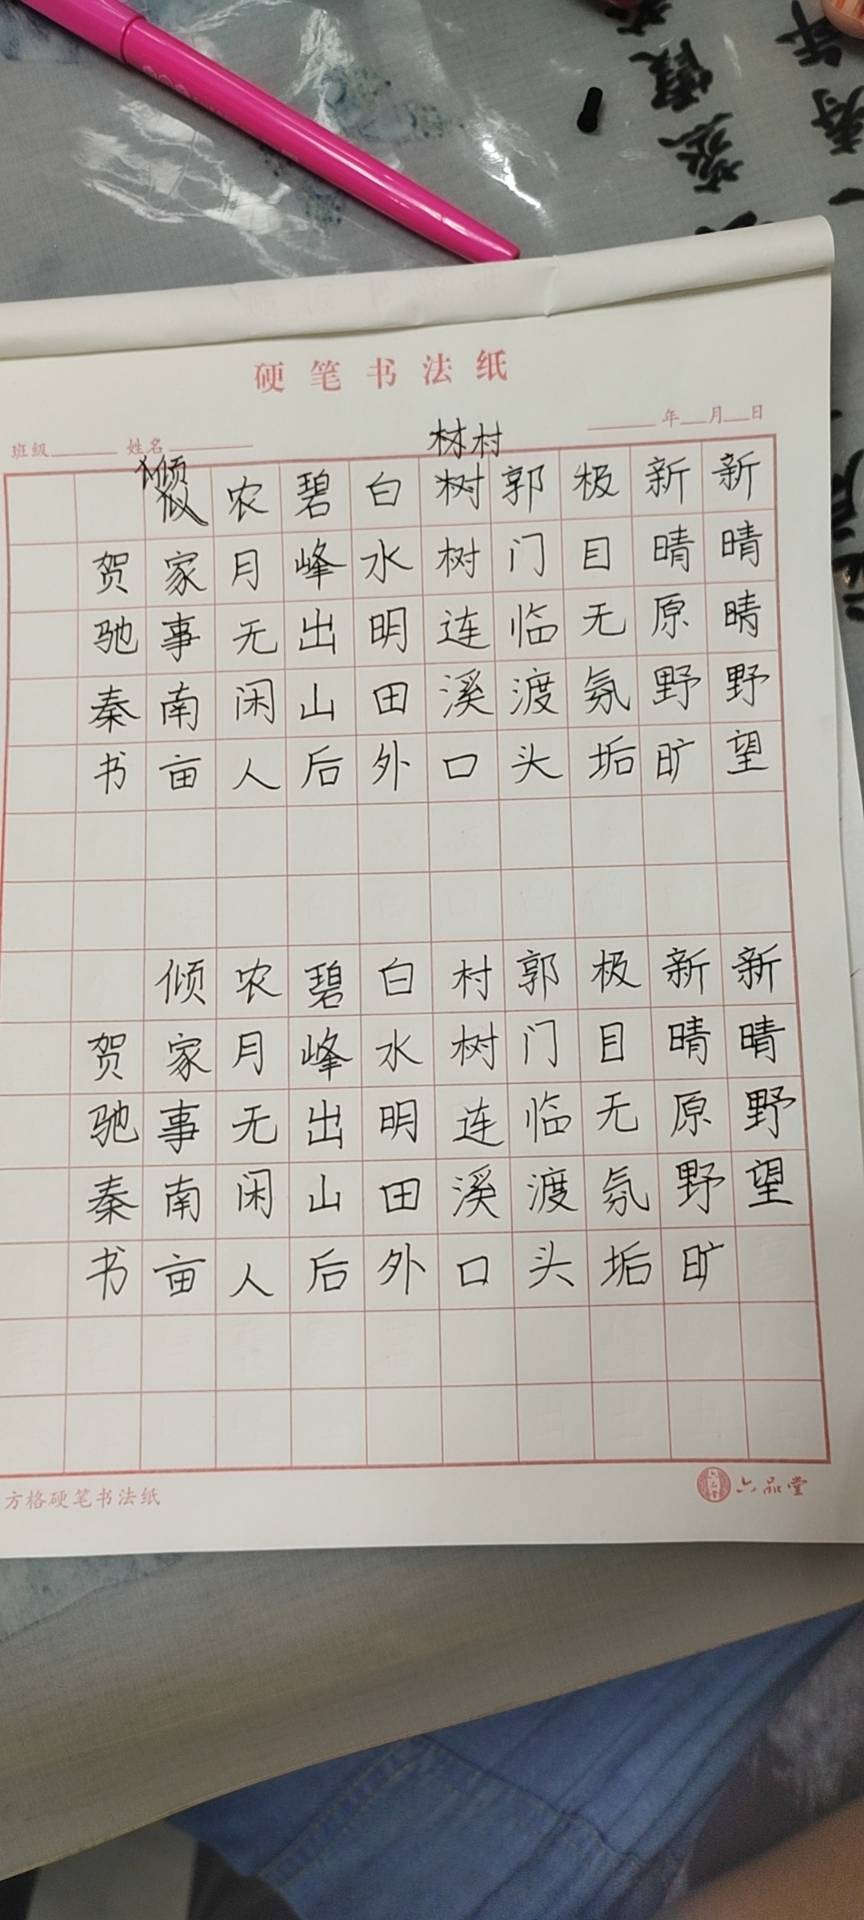 硬笔书法纸
班级 姓名 年 月 日
材村
倾
新晴晴野望
新晴原野旷
极目无氛垢
郭门临渡头
树树连溪口
白水明田外
碧峰出山后
农月无闲人
家事南亩
贺驰秦书
新晴野望
新晴原野旷
极目无氛垢
郭门临渡头
村树连溪口
白水明田外
碧峰出山后
农月无闲人
倾家事南亩
贺驰秦书
方格硬笔书法纸
六品堂